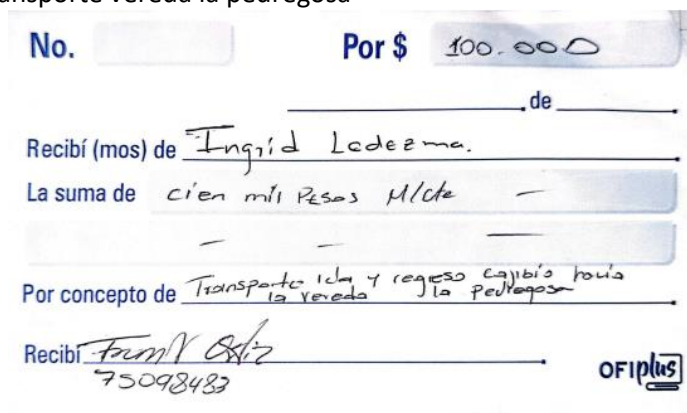 ansporte vereda la pedregosa
No. Por $ 100.000
de
Recibí (mos) de Ingrid Ledezma.
La suma de cien mil Pesos M/cte —
— — —
Por concepto de Transporte ida y regreso Cajibío hacia
la vereda la Pedregosa
Recibí
75098483
OFIplus